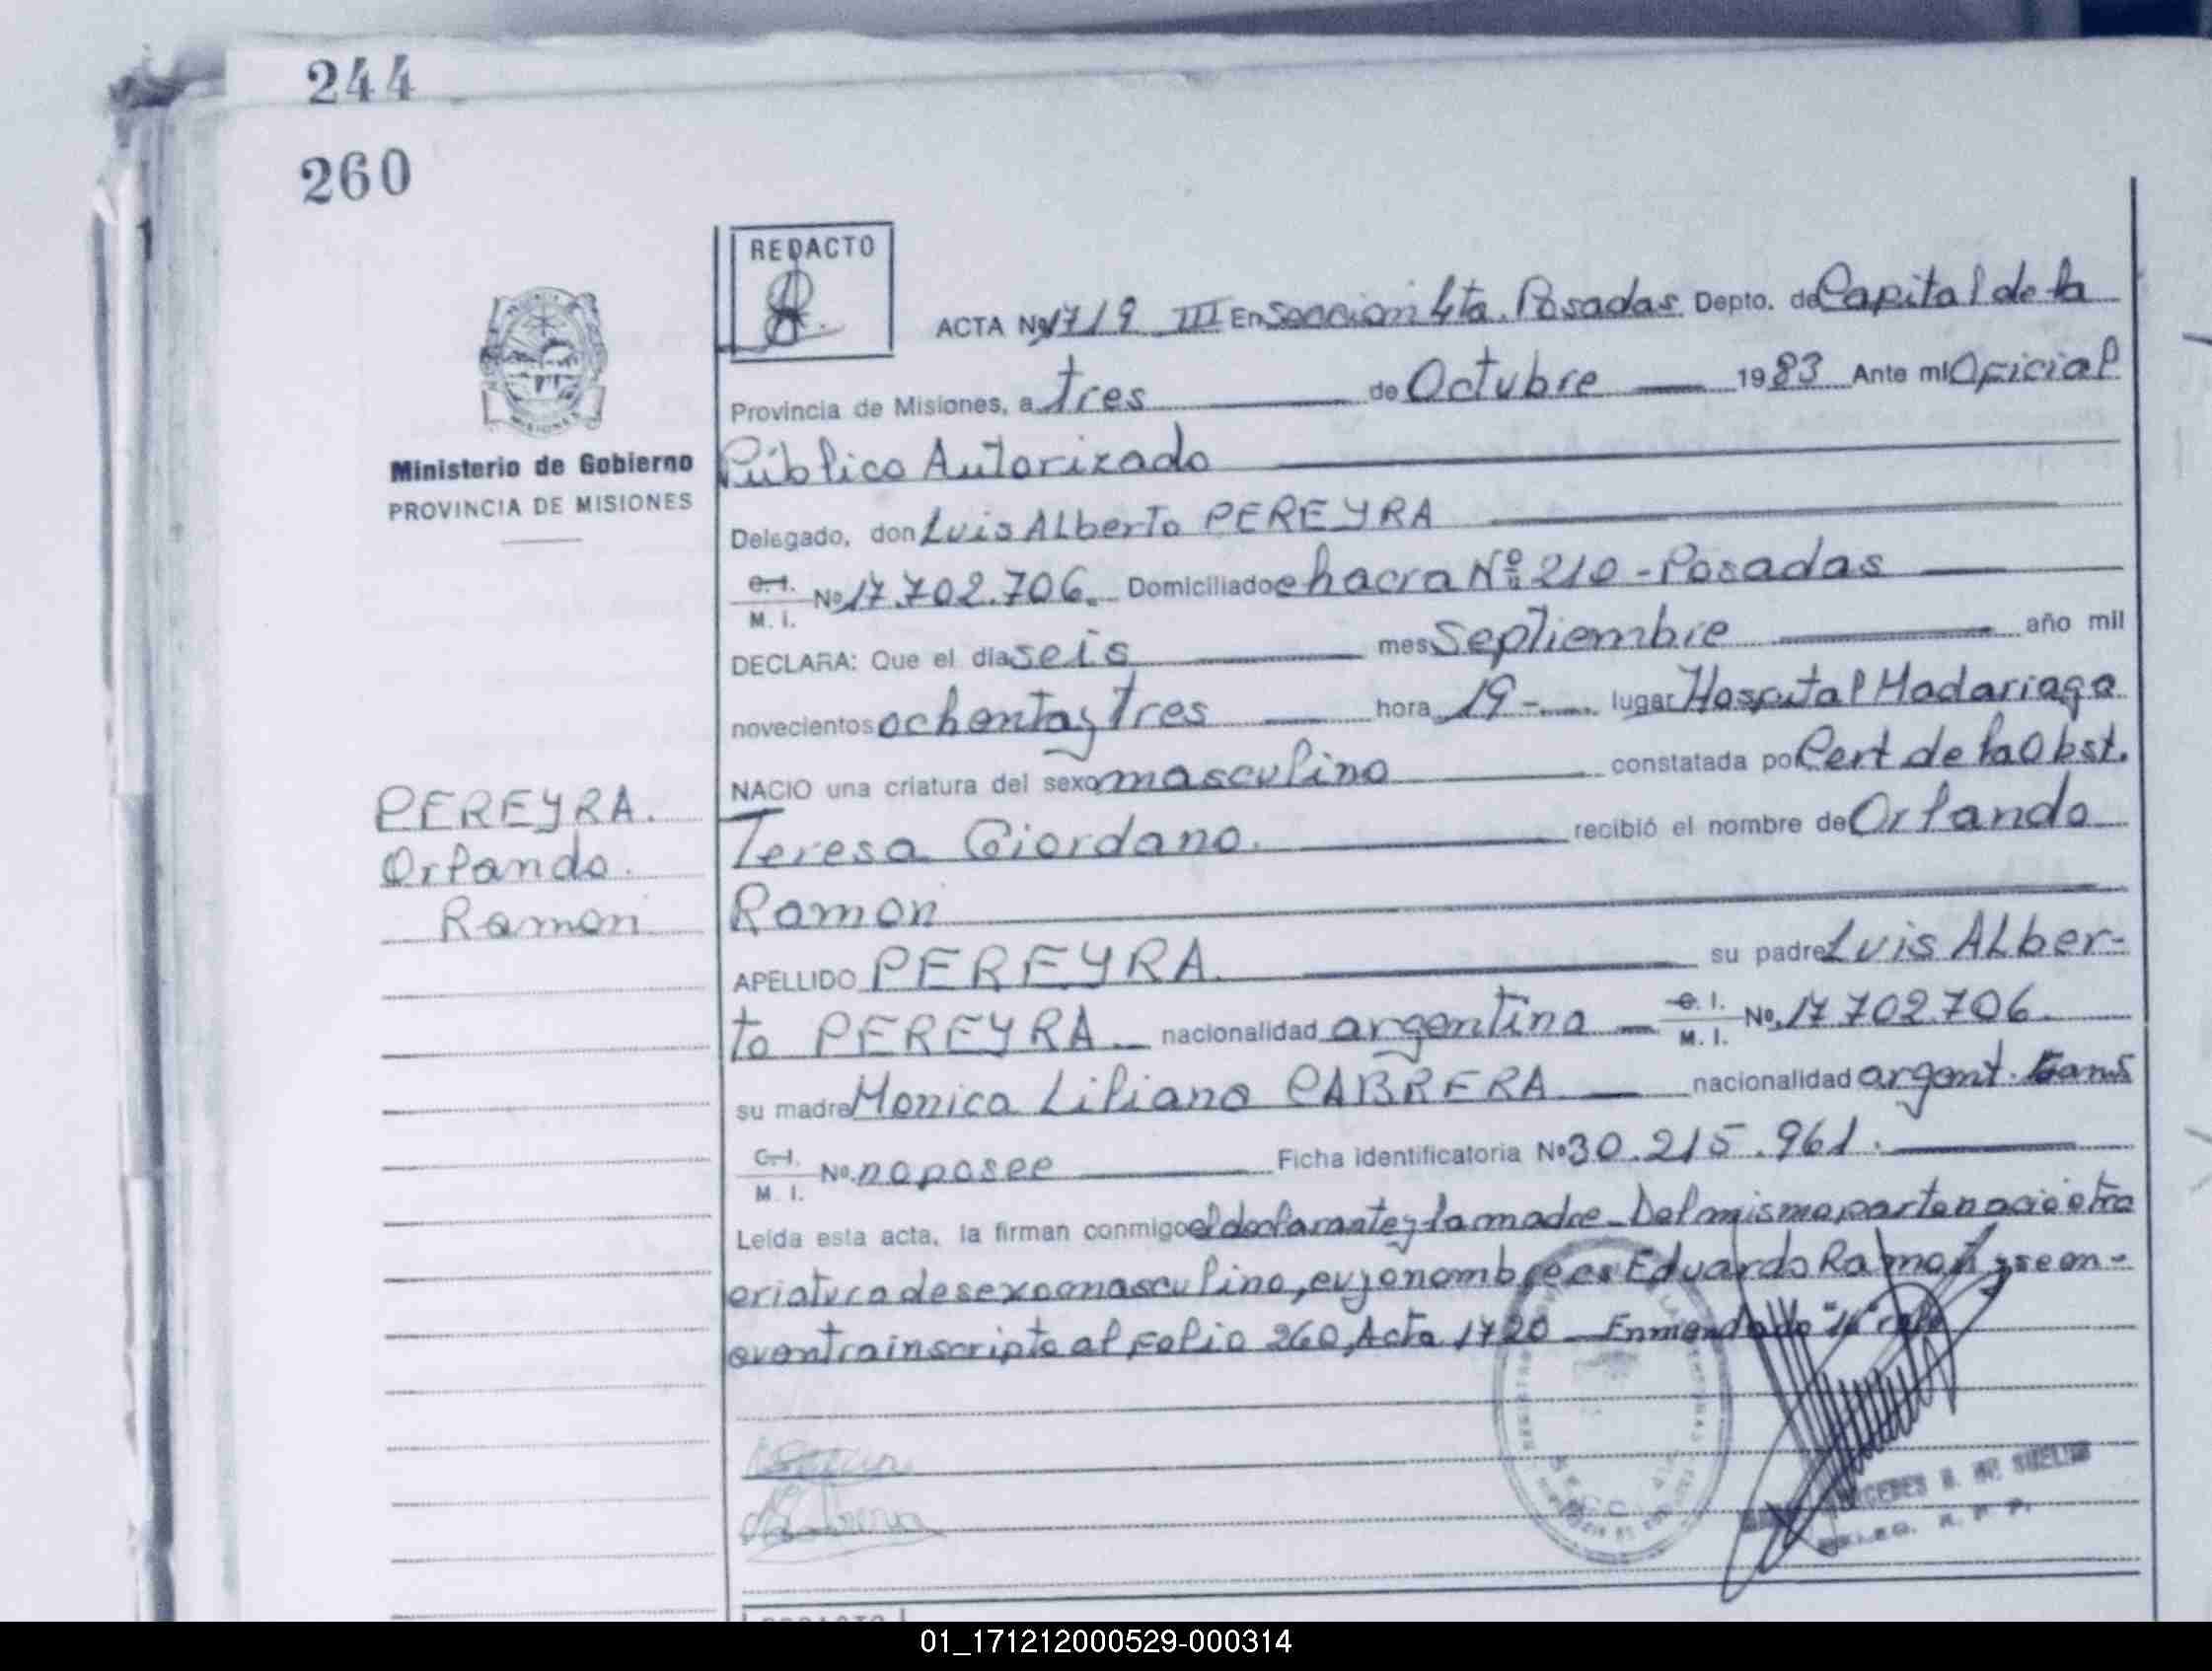 244
260
REDACTO
ACTA Nº 1719 III En Seccion 4ta. Posadas Depto. de Capital de la
Provincia de Misiones, a tres de Octubre 1983 Ante mi Oficial
Público Autorizado
Ministerio de Gobierno
PROVINCIA DE MISIONES
Delegado, don Luis Alberto PEREYRA
C. I. M. I. Nº 17.702.706. Domiciliado chacra Nº 210 - Posadas
DECLARA: Que el dia seis mes Septiembre año mil
novecientos ochenta y tres hora 19 - lugar Hospital Madariaga
NACIO una criatura del sexo masculino constatada por Cert de la Obst.
PEREYRA.
Orlando.
Ramon
Teresa Giordano. recibió el nombre de Orlando
Ramon
APELLIDO PEREYRA. su padre Luis Alber-
to PEREYRA nacionalidad argentina C. I. M. I. Nº 17.702.706.
su madre Monica Liliana CABRERA nacionalidad argent.
C. I. M. I. Nº no posee Ficha identificatoria Nº 30.215.961.
Leida esta acta, la firman conmigo el declarante y la madre - Del mismo parto nació otra
criatura de sexo masculino, cuyo nombre es Eduardo Ramon y se en-
cuentra inscripto al Folio 260, Acta 1720 - Enmendado
DE SUELDO
R. P. P.
REDACTO
01_171212000529-000314